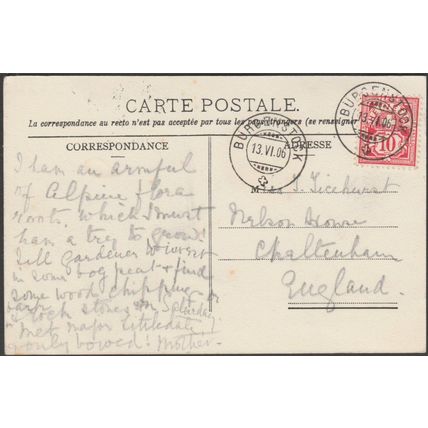 CARTE POSTALE.
La correspondance au recto n'est pas acceptée par tous les pays étrangers (se renseigner
CORRESPONDANCE
ADRESSE
BÜRGENSTOCK
13.VI.06
BÜRGENSTOCK
13.VI.06
10
I have an armful
of Alpine flora
roots, which I must
have a try to grow!
Tell gardener to
in some bog peat & find
some wood chippings or
rock stones. On Saturday
met Major
only bowed! Mother.
M Ticehurst
Nelson House
Cheltenham
England.